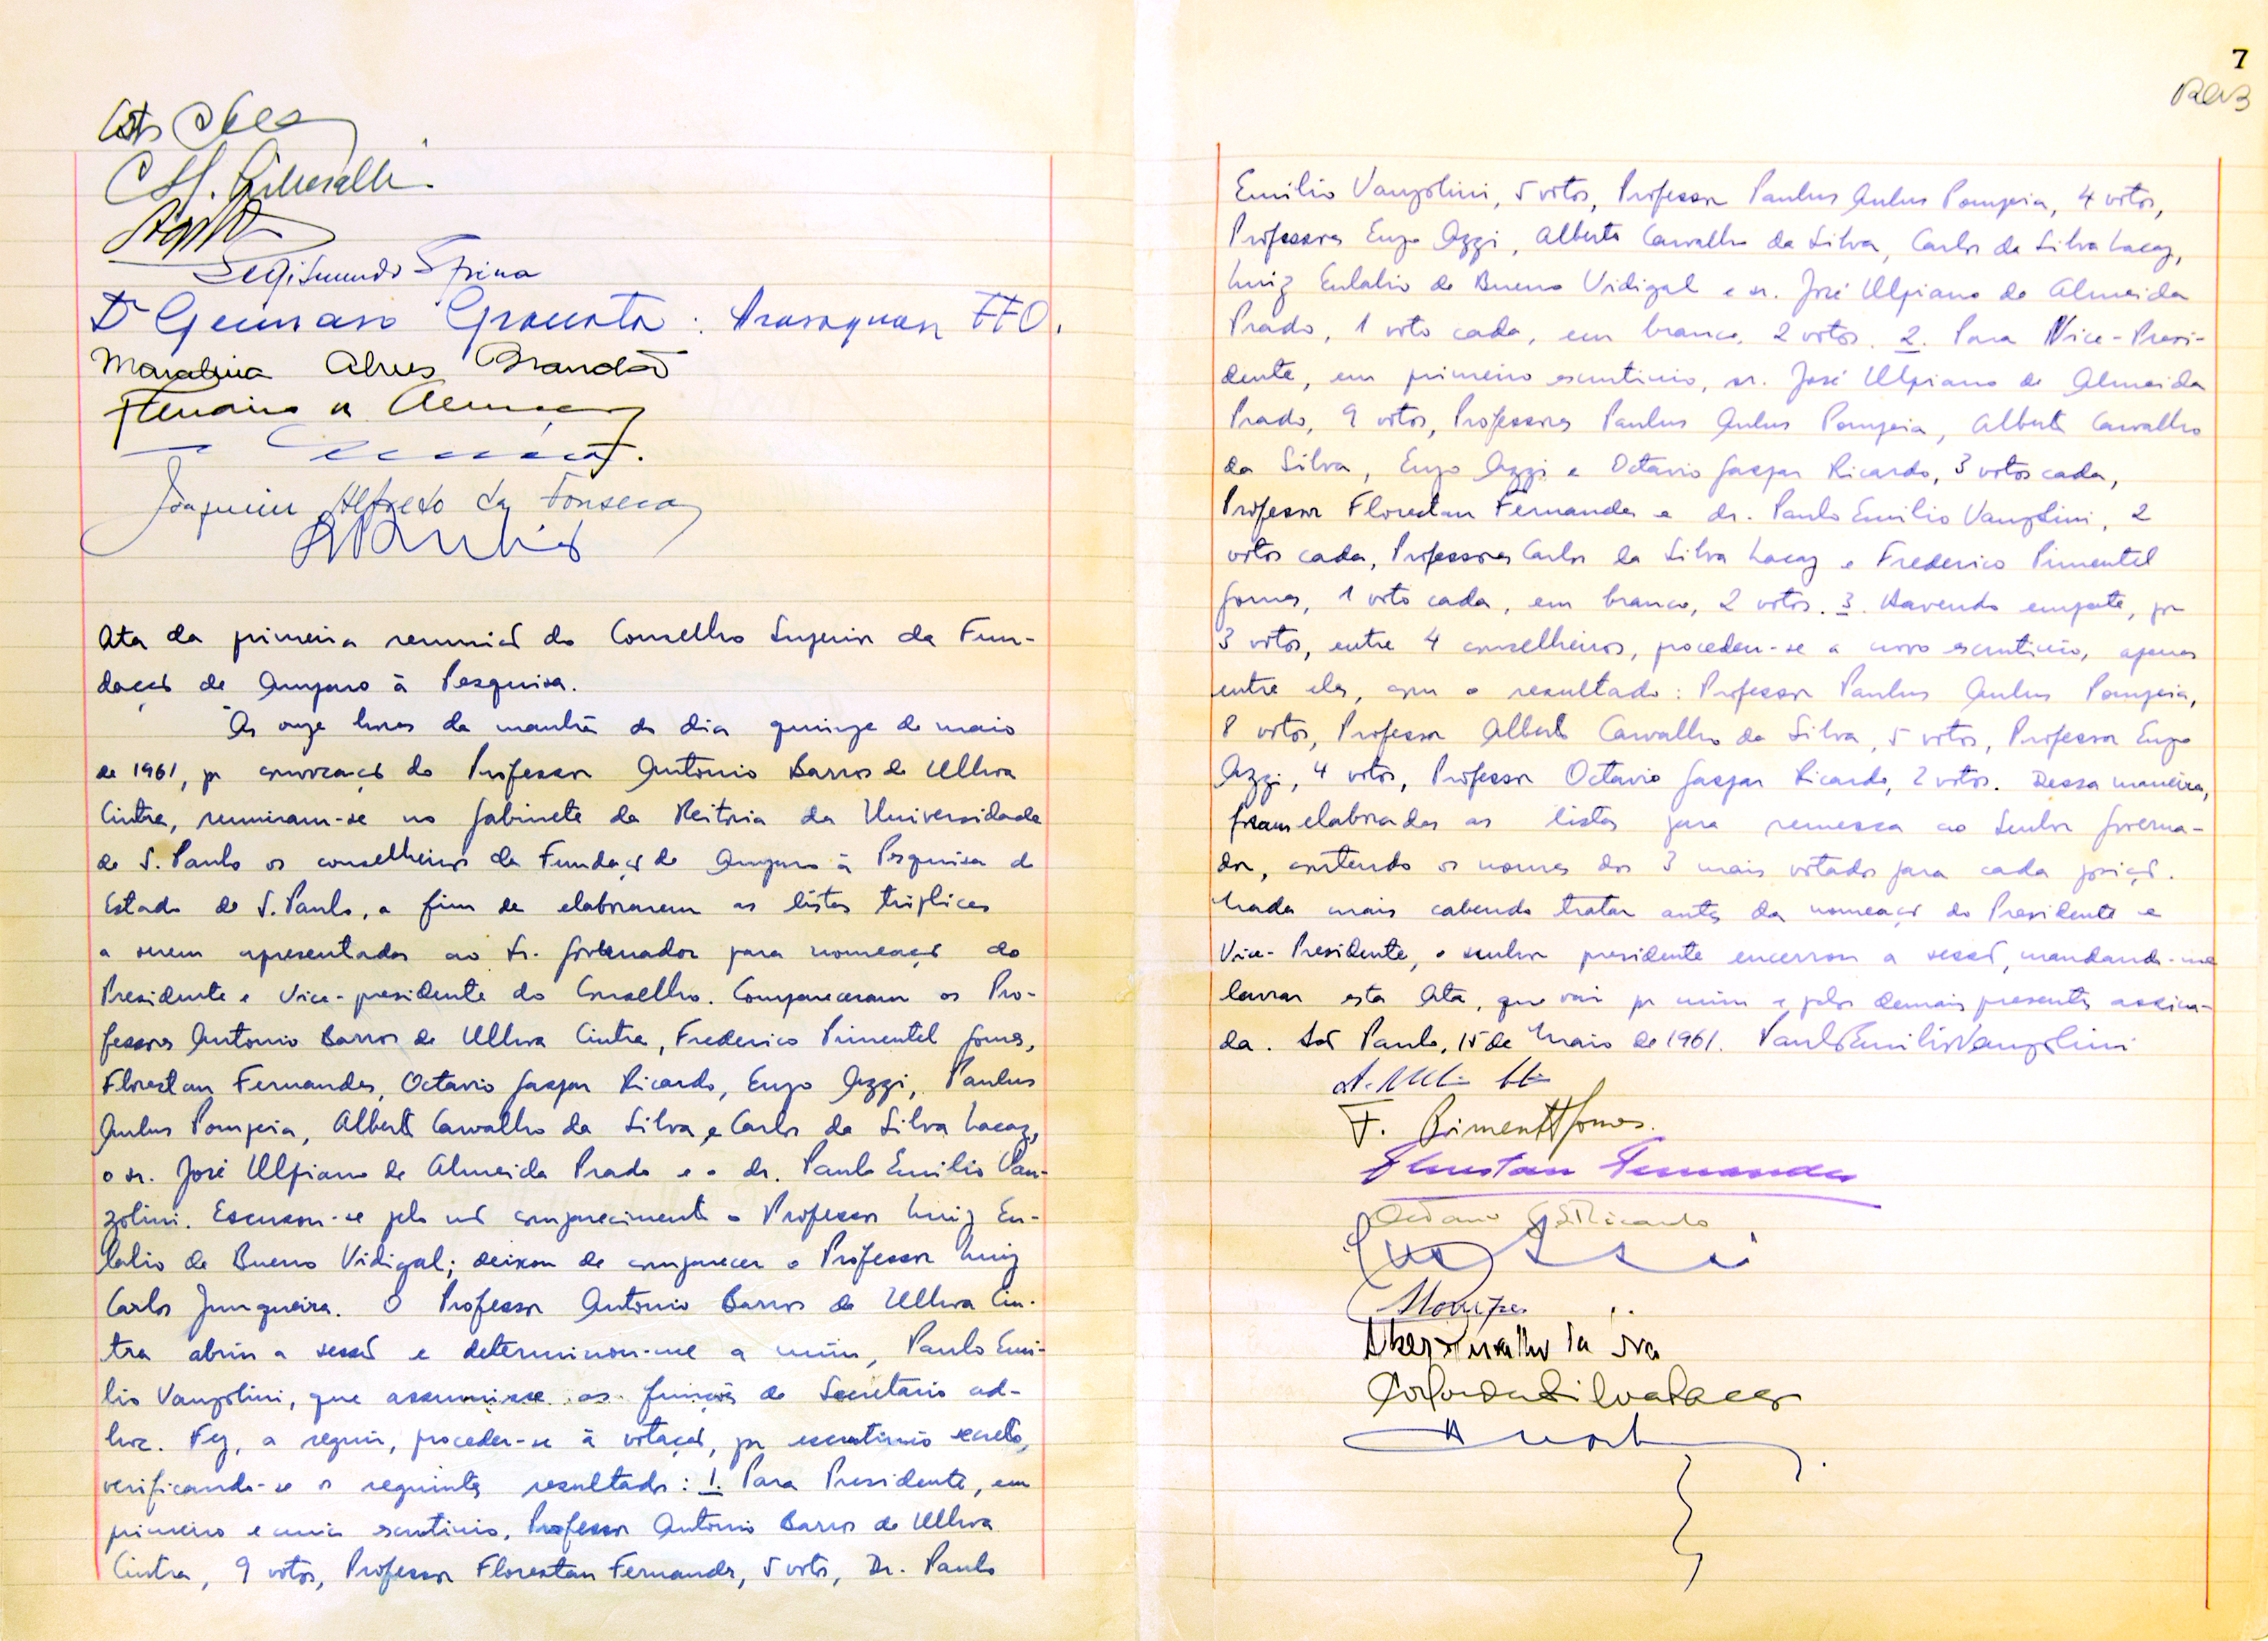 Segismundo Spina
Dr Gennaro Granata : Araraquara FFO.
Alves Brandão
Joaquim Alfredo da Fonseca
Ata da primeira reunião do Conselho Superior da Fun-
dação de Amparo à Pesquisa.
Às onze horas da manhã do dia quinze de maio
de 1961, por convocação do Professor Antonio Barros de Ulhoa
Cintra, reuniram-se no Gabinete da Reitoria da Universidade
de S. Paulo os conselheiros da Fundação de Amparo à Pesquisa do
Estado de S. Paulo, a fim de elaborarem as listas tríplices
a serem apresentadas ao Sr. Governador para nomeação do
Presidente e Vice-presidente do Conselho. Compareceram os Pro-
fessores Antonio Barros de Ulhoa Cintra, Frederico Pimentel Gomes,
Florestan Fernandes, Octavio Gaspar Ricardo, Enzo Azzi, Paulus
Aulus Pompeia, Alberto Carvalho da Silva, e Carlos da Silva Lacaz,
o sr. José Ulpiano de Almeida Prado e o dr. Paulo Emilio Van-
zolini. Escusou-se pelo não comparecimento o Professor Luiz Eu-
lalio de Bueno Vidigal; deixou de comparecer o Professor Luiz
Carlos Junqueira. O Professor Antonio Barros de Ulhoa Cin-
tra abriu a sessão e determinou-me a mim, Paulo Emi-
lio Vanzolini, que assumisse as funções de Secretario ad-
hoc. Fez, a seguir, proceder-se à votação, por escrutinio secreto,
verificando-se os seguintes resultados: 1. Para Presidente, em
primeiro e unico escrutinio, Professor Antonio Barros de Ulhoa
Cintra, 9 votos, Professor Florestan Fernandes, 5 votos, Dr. Paulo
7
Emilio Vanzolini, 5 votos, Professor Paulus Aulus Pompeia, 4 votos,
Professores Enzo Azzi, Alberto Carvalho da Silva, Carlos da Silva Lacaz,
Luiz Eulalio de Bueno Vidigal e sr. José Ulpiano de Almeida
Prado, 1 voto cada, em branco, 2 votos. 2. Para Vice-Presi-
dente, em primeiro escrutinio, sr. José Ulpiano de Almeida
Prado, 9 votos, Professores Paulus Aulus Pompeia, Alberto Carvalho
da Silva, Enzo Azzi e Octavio Gaspar Ricardo, 3 votos cada,
Professor Florestan Fernandes e dr. Paulo Emilio Vanzolini, 2
votos cada, Professores Carlos da Silva Lacaz e Frederico Pimentel
Gomes, 1 voto cada, em branco, 2 votos. 3. Havendo empate, por
3 votos, entre 4 conselheiros, procedeu-se a novo escrutinio, apenas
entre eles, com o resultado: Professor Paulus Aulus Pompeia,
8 votos, Professor Alberto Carvalho da Silva, 5 votos, Professor Enzo
Azzi, 4 votos, Professor Octavio Gaspar Ricardo, 2 votos. Dessa maneira,
foram elaboradas as listas para remessa ao Senhor Governa-
dor, contendo os nomes dos 3 mais votados para cada posição.
Nada mais cabendo tratar antes da nomeação do Presidente e
Vice-Presidente, o senhor presidente encerrou a sessão, mandando-me
lavrar esta Ata, que vai por mim e pelos demais presentes assina-
da. São Paulo, 15 de Maio de 1961. Paulo Emilio Vanzolini
F. Pimentel Gomes.
Florestan Fernandes
Octavio G. Ricardo
Carlos da Silva Lacaz